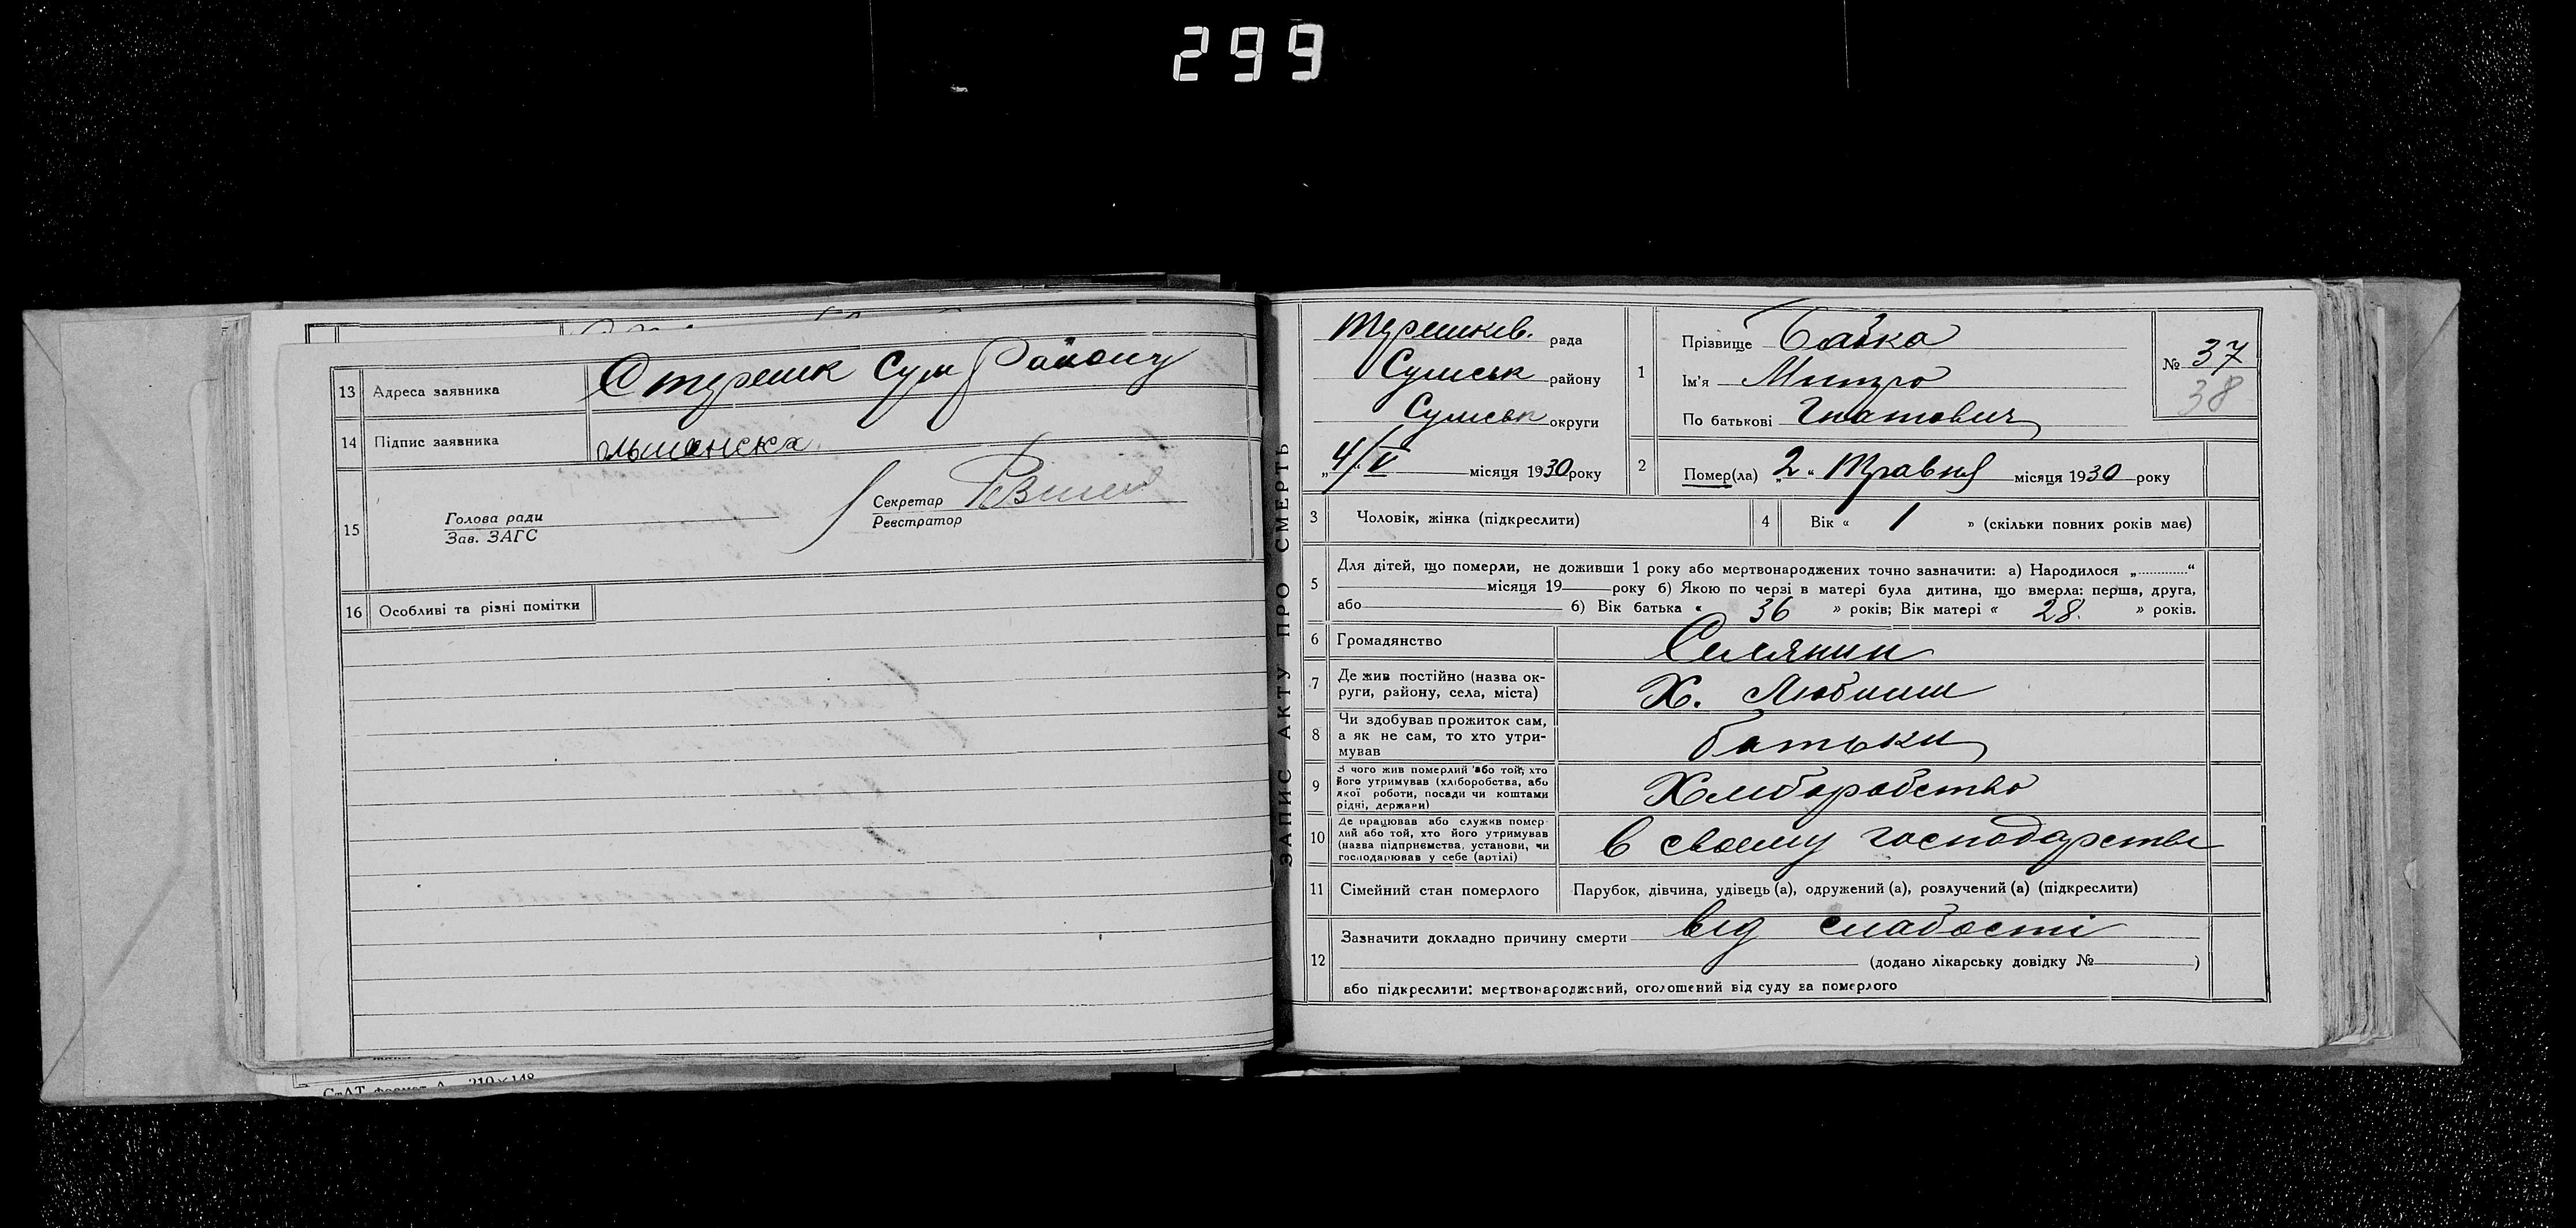 299
13 Адреса заявника С терешк Сум Району
14 Підпис заявника ольшанска
15 Голова ради
Зав. ЗАГС
Секретар
Реєстратор
16 Особливі та різні помітки
ЗАПИС АКТУ ПРО СМЕРТЬ
Терешків. рада
Сумськ району
Сумськ округи
„4/V місяця 1930 року
1 Прізвище Бабка
Ім'я Митро
По батькові Гнатович
№ 37
38
2 Помер(ла) „2“ Травня місяця 1930 року
3 Чоловік, жінка (підкреслити)
4 Вік « 1 » (скільки повних років має)
5 Для дітей, що померли, не доживши 1 року або мертвонароджених точно зазначити: а) Народилося „............“
місяця 19 року б) Якою по черзі в матері була дитина, що вмерла: перша, друга,
або б) Вік батька « 36 » років; Вік матері « 28. » років.
6 Громадянство Селянин
7 Де жив постійно (назва ок-
руги, району, села, міста) Х.
8 Чи здобував прожиток сам,
а як не сам, то хто утри-
мував батьки
9 З чого жив померлий або той, хто
його утримував (хліборобства, або
якої роботи, посади чи коштами
рідні, держави) Хліборобство
10 Де працював або служив помер-
лий або той, хто його утримував
(назва підприємства, установи, чи
господарював у себе (артілі) в своему господарстві
11 Сімейний стан померлого Парубок, дівчина, удівець (а), одружений (а), розлучений (а) (підкреслити)
12 Зазначити докладно причину смерти від слабості
(додано лікарську довідку № )
або підкреслити: мертвонароджений, оголошений від суду за померлого